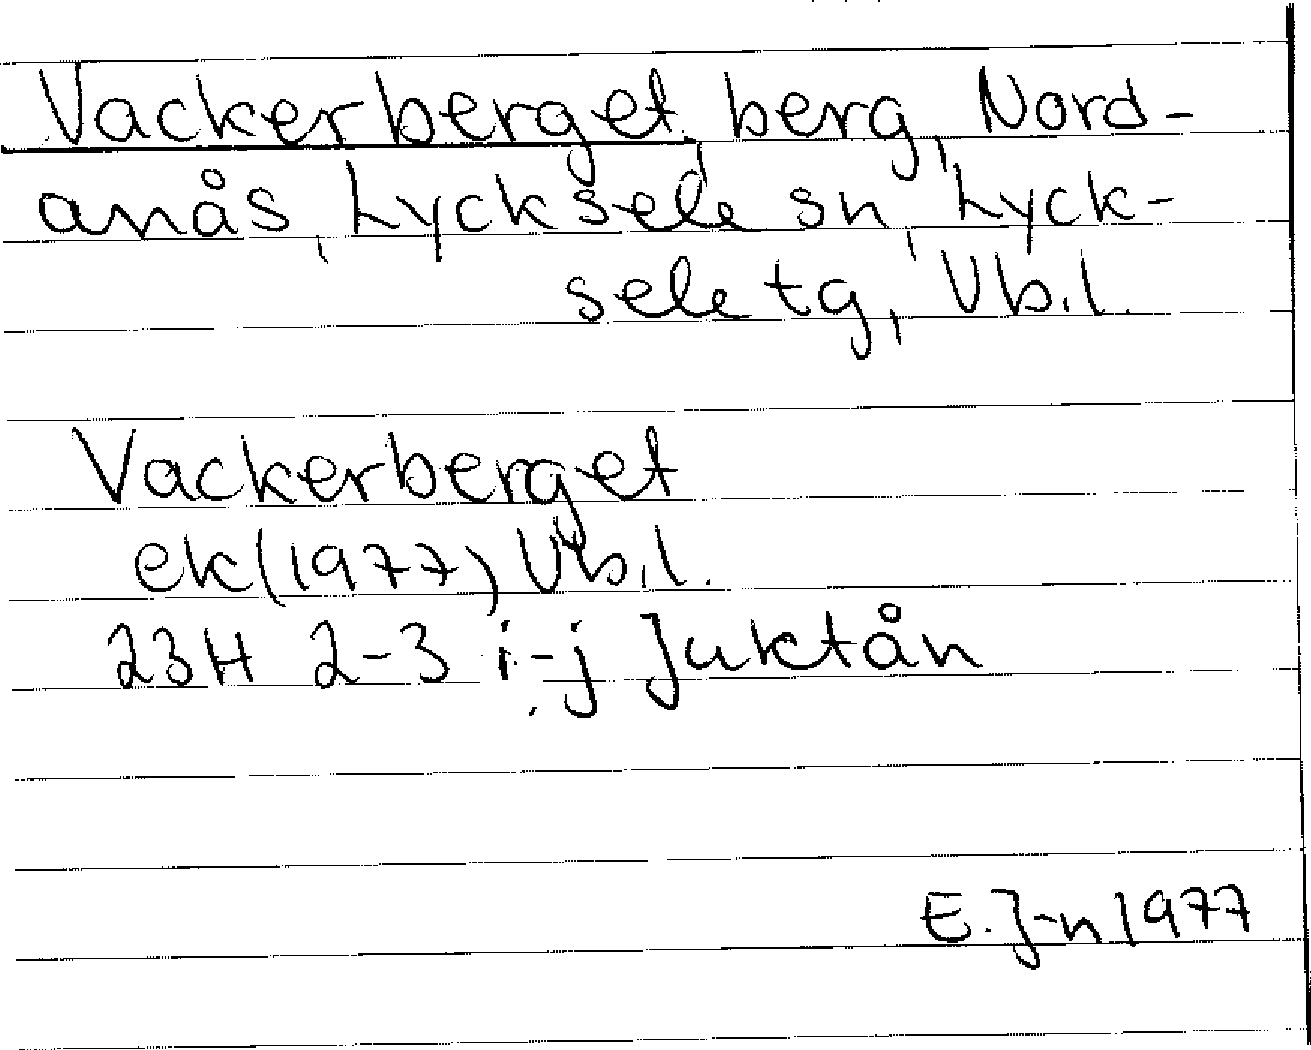 Vackerberget, berg, Nord-
anås, Lycksele sn, Lyck-
sele tg, Vb.l.
Vackerberget
ek(1977) Vb.l.
23H 2-3 i-j Juktån
E. J-n 1977